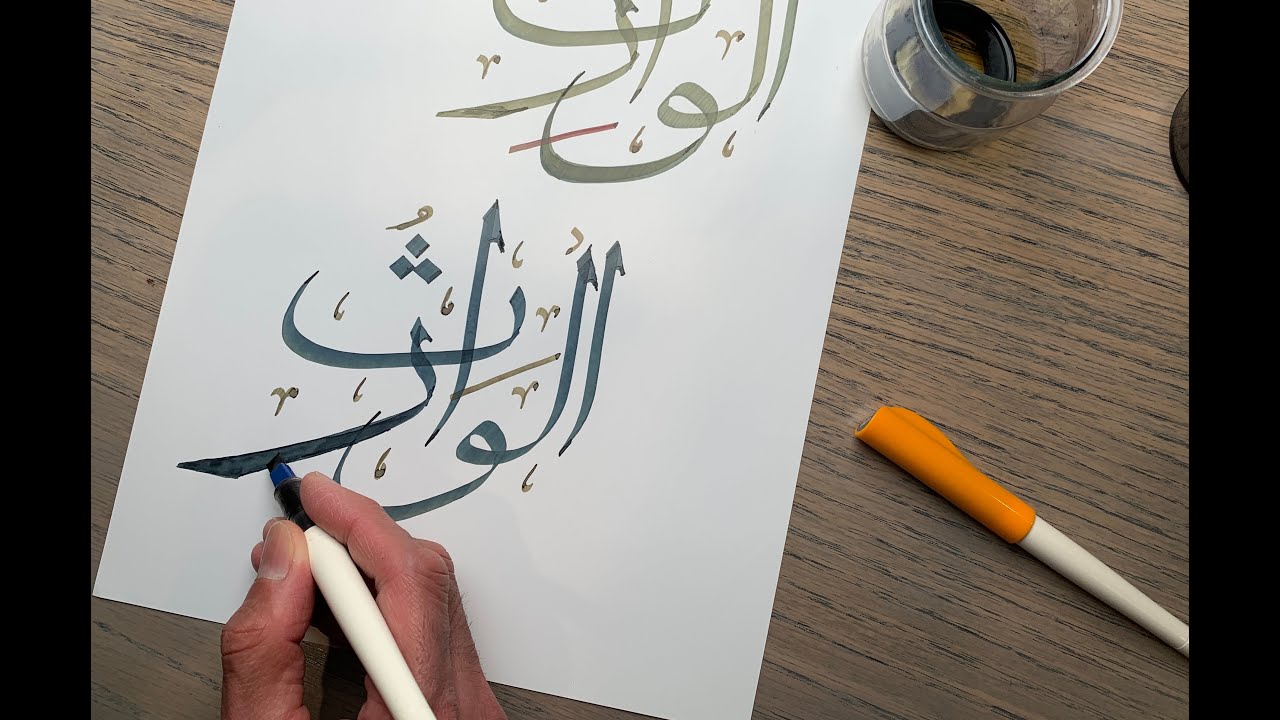 الوارث
الْوَارِثُ